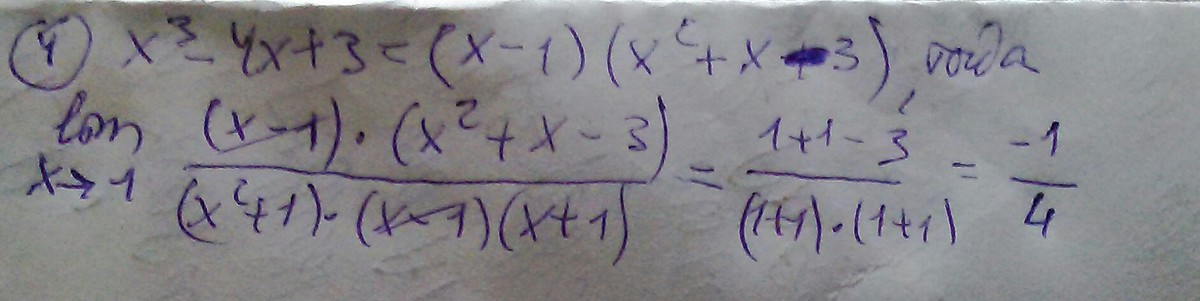 ④ x³ - 4x + 3 = (x - 1)(x² + x - 3), тогда
lim x→1 (x - 1)·(x² + x - 3) / (x² + 1)·(x - 1)(x + 1) = 1 + 1 - 3 / (1 + 1)·(1 + 1) = -1 / 4